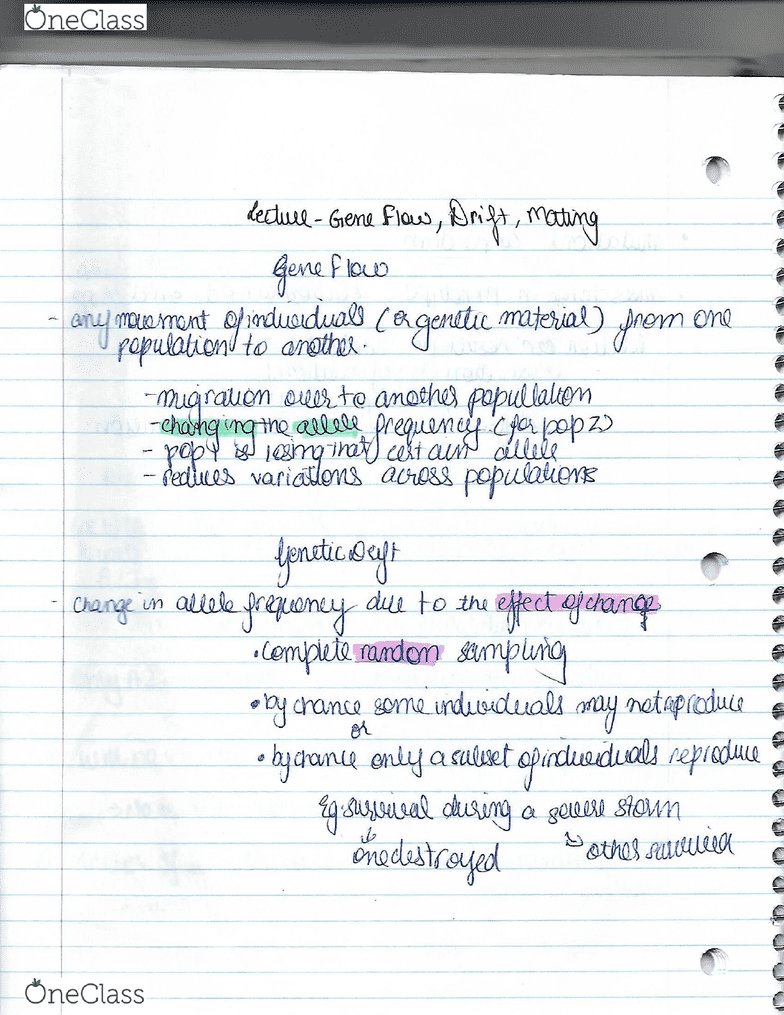 OneClass
Lecture - Gene Flow, Drift, Mating
Gene Flow
- any movement of individuals (or genetic material) from one
population to another.
- migration over to another popullation
- changing the allele frequency (for pop 2)
- pop 1 is losing that certain allele
- reduces variations across populations
Genetic Drift
- change in allele frequency due to the effect of change
• complete random sampling
• by chance some individuals may not reproduce
or
• by chance only a subset of individuals reproduce
Eg. survival during a severe storm
↓ one destroyed ↳ other survived
OneClass